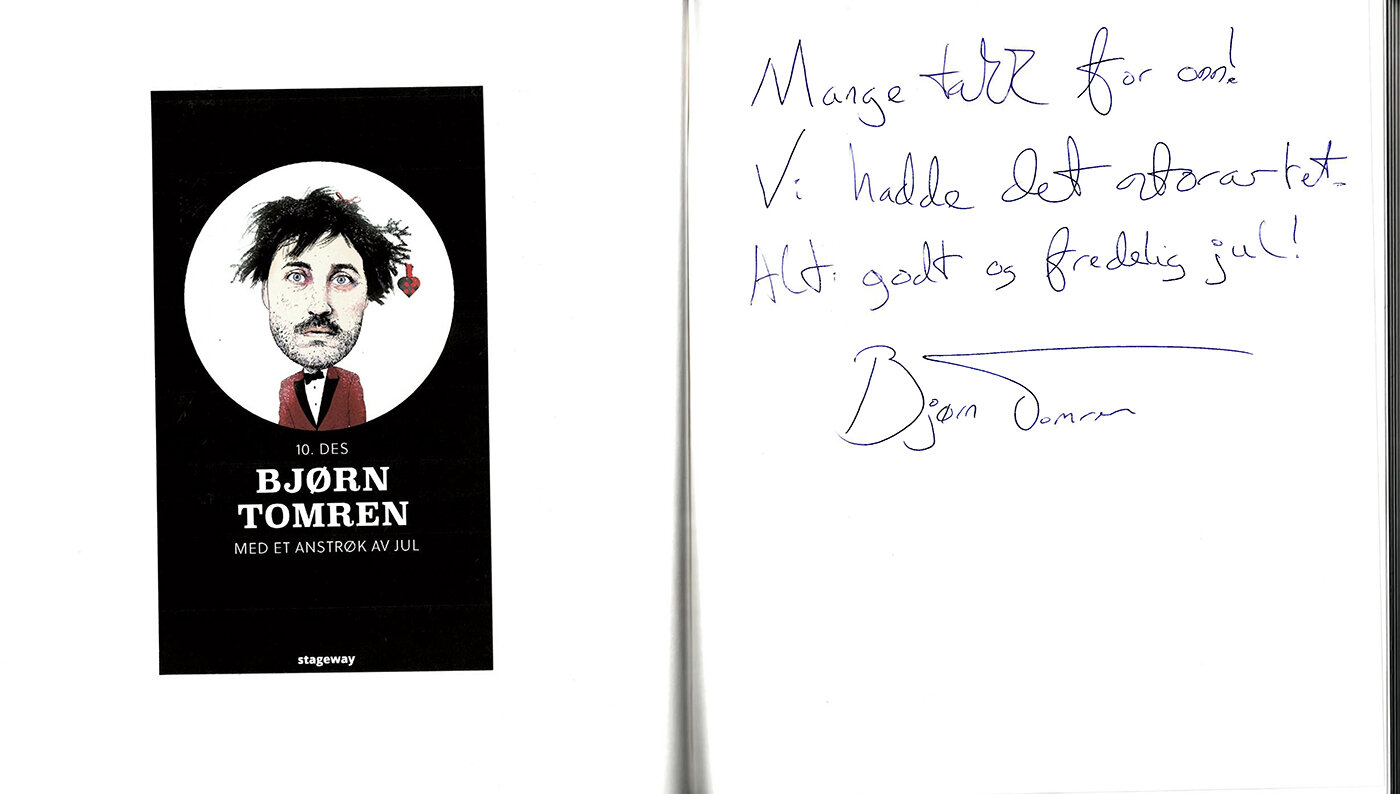 10. DES
BJØRN
TOMREN
MED ET ANSTRØK AV JUL
stageway
Mange takk for oss!
Vi hadde det storartet.
Alt godt og fredelig jul!
Bjørn Tomren